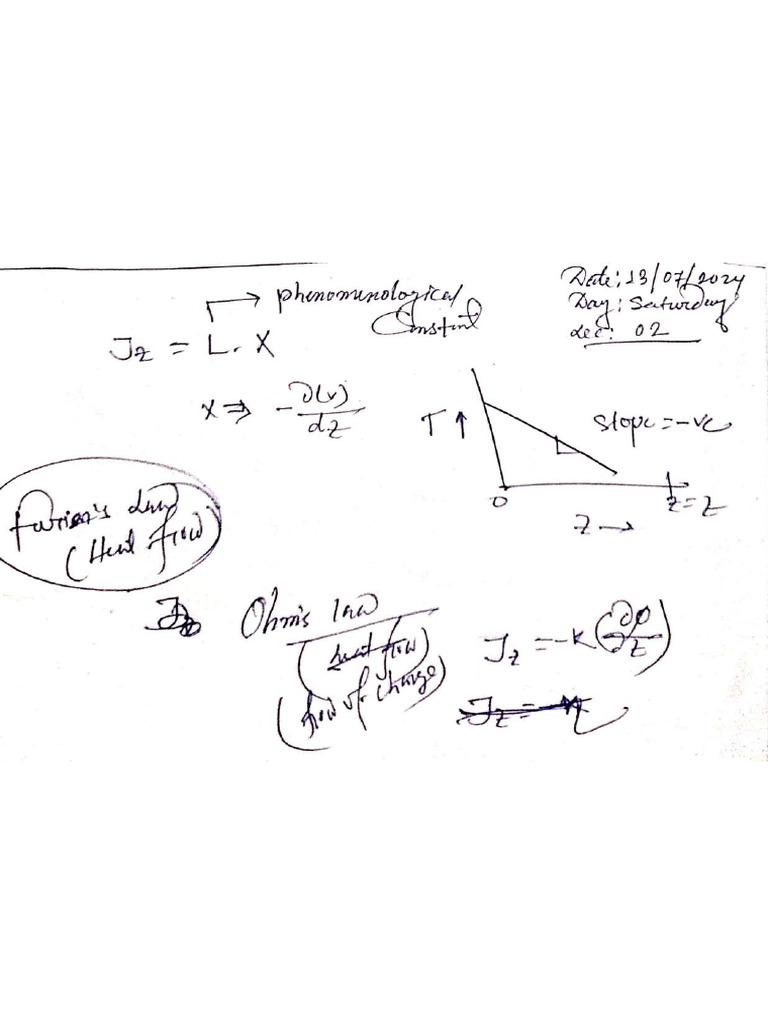 Date: 13/07/2024
Day: Saturday
Lec: 02
→ phenomunological
Constant
J_z = L. X
X ⇒ -∂(v)/dz
T ↑
slope = -ve
0
z = z
z →
Fourier's Law
(Heat flow)
Ohm's law
(heat flow)
(flow of charge)
J_z = -K(∂φ/∂z)
J_z =